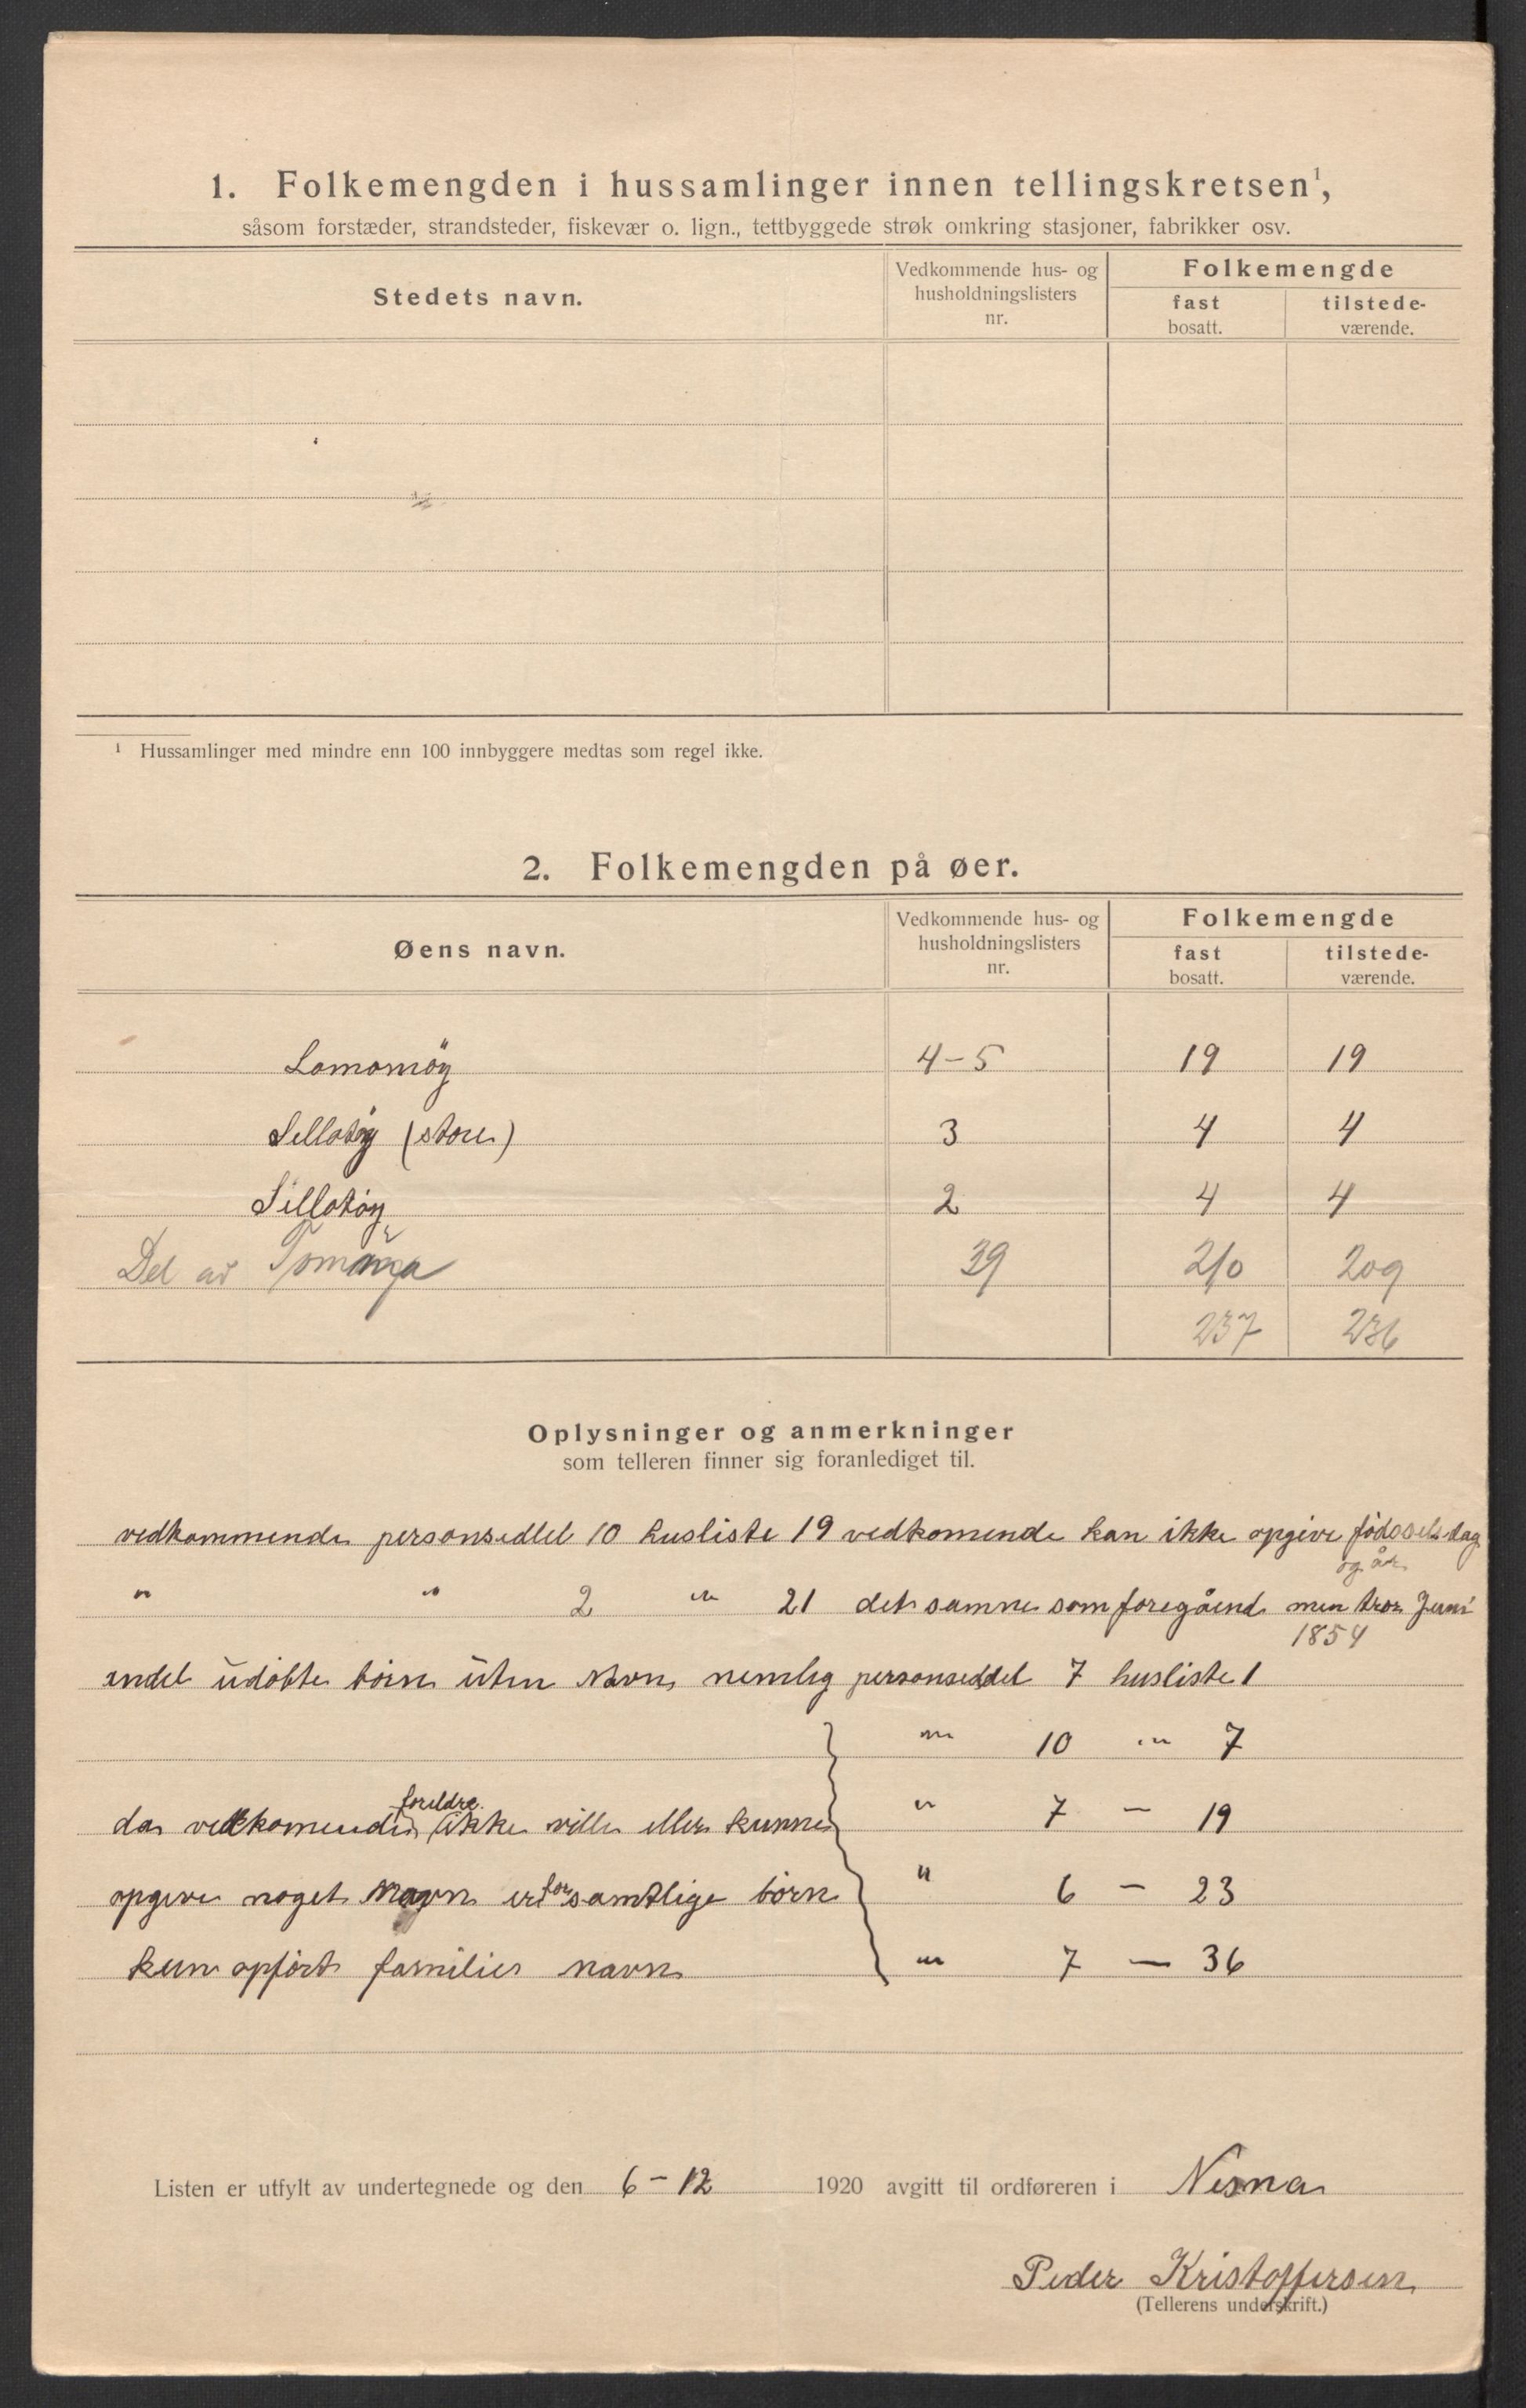 1. Folkemengden i hussamlinger innen tellingskretsen¹,
såsom forstæder, strandsteder, fiskevær o. lign., tettbyggede strøk omkring stasjoner, fabrikker osv.
Stedets navn.
Vedkommende hus- og husholdningslisters nr.
Folkemengde
fast bosatt.
tilstede-værende.
¹ Hussamlinger med mindre enn 100 innbyggere medtas som regel ikke.
2. Folkemengden på øer.
Øens navn.
Vedkommende hus- og husholdningslisters nr.
Folkemengde
fast bosatt.
tilstede-værende.
4-5 19 19
(store) 3 4 4
2 4 4
Del av 39 210 209
237 236
Oplysninger og anmerkninger
som telleren finner sig foranlediget til.
vedkommende personseddel 10 husliste 19 vedkomende kan ikke opgive fødselsdag
og år
" " 2 " 21 det samme som foregåend men tror Juni
1854
endel udöbte börn uten Navn nemlig personseddel 7 husliste 1
" 10 " 7
foreldre
da vedkomendes ikke ville eller kunne " 7 - 19
opgive noget Navn er for samtlige börn " 6 - 23
kun opfört familie navn " 7 - 36
Listen er utfylt av undertegnede og den 6-12 1920 avgitt til ordføreren i Nesna
Peder Kristoffersen
(Tellerens underskrift.)